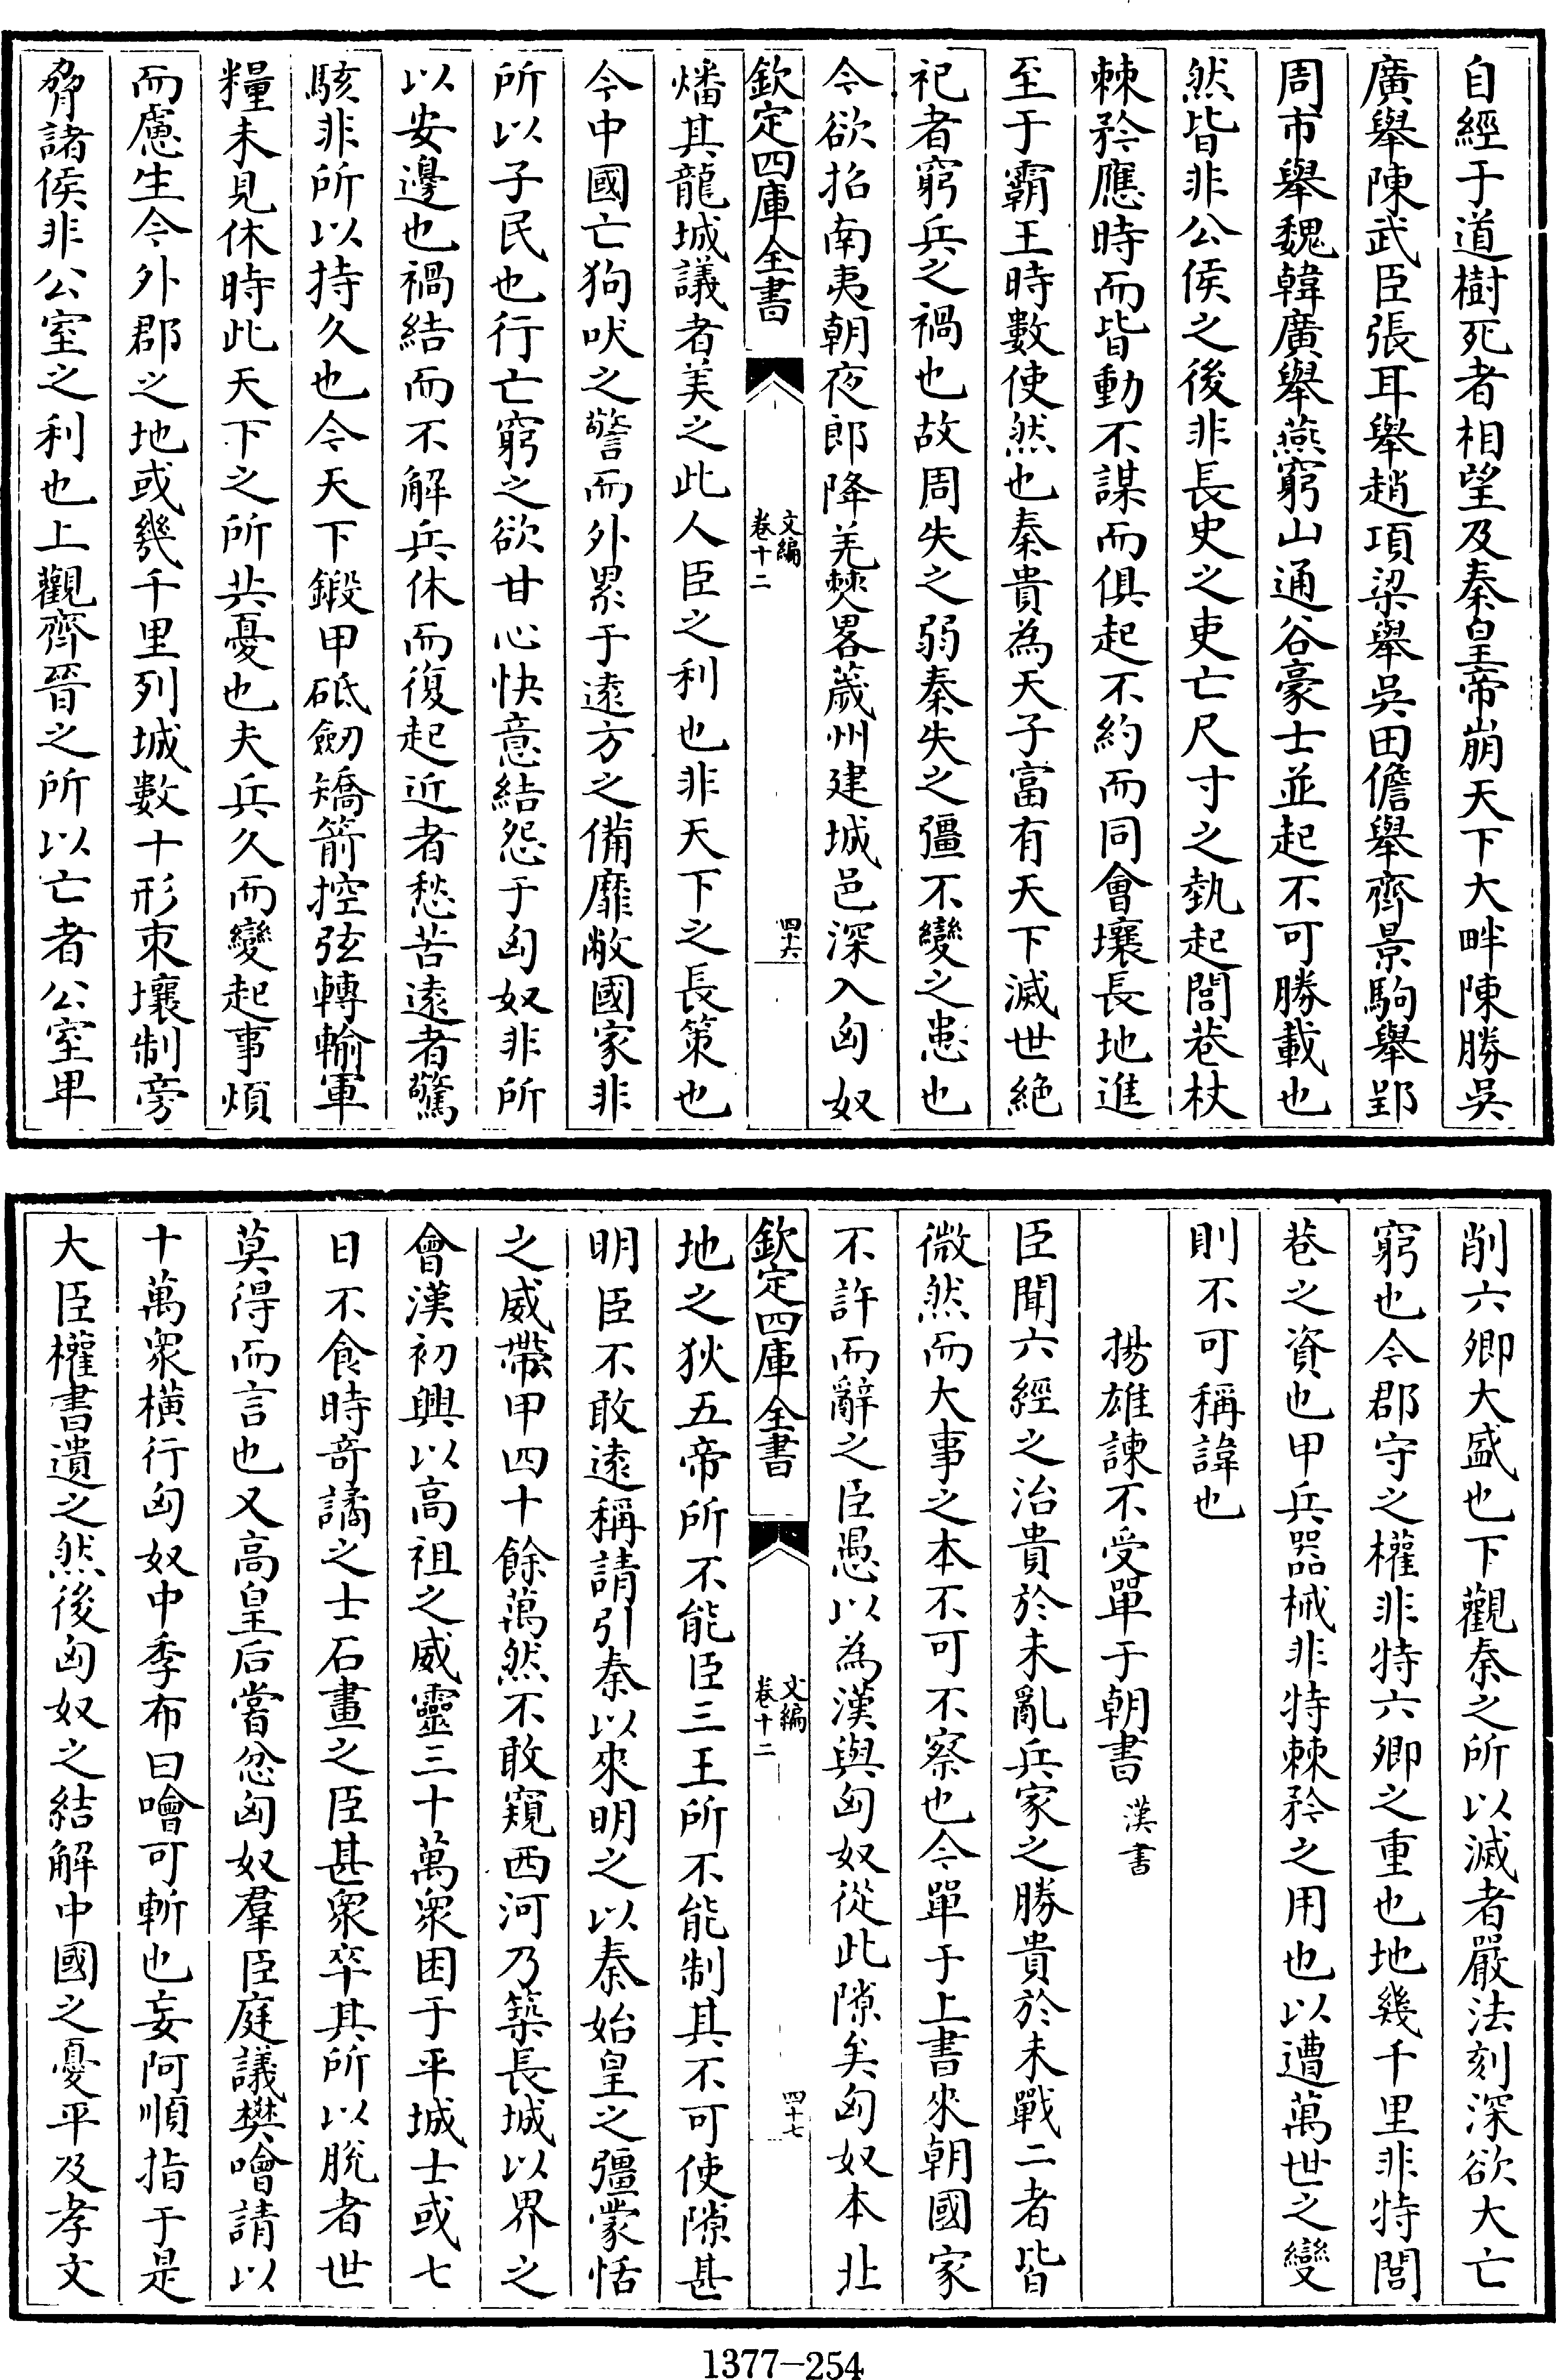 自經于道樹死者相望及秦皇帝崩天下大畔陳勝吳
廣舉陳武臣張耳舉趙項梁舉吳田儋舉齊景駒舉郢
周市舉魏韓廣舉燕窮山通谷豪士並起不可勝載也
然皆非公侯之後非長史之吏亡尺寸之埶起閭巷杖
棘矜應時而皆動不謀而俱起不約而同會壤長地進
至于霸王時數使然也秦貴為天子富有天下滅世絕
祀者窮兵之禍也故周失之弱秦失之彊不變之患也
今欲招南夷朝夜郎降羌僰畧薉州建城邑深入匈奴
欽定四庫全書
文編
卷十二
四十六
燔其龍城議者美之此人臣之利也非天下之長策也
今中國亡狗吠之警而外累于遠方之備靡敝國家非
所以子民也行亡窮之欲甘心快意結怨于匈奴非所
以安邊也禍結而不解兵休而復起近者愁苦遠者驚
駭非所以持久也今天下鍛甲砥劒矯箭控弦轉輸軍
糧未見休時此天下之所共憂也夫兵久而變起事煩
而慮生今外郡之地或幾千里列城數十形束壤制旁
脅諸侯非公室之利也上觀齊晉之所以亡者公室卑
削六卿大盛也下觀秦之所以滅者嚴法刻深欲大亡
窮也今郡守之權非特六卿之重也地幾千里非特閭
巷之資也甲兵器械非特棘矜之用也以遭萬世之變
則不可稱諱也
揚雄諫不受單于朝書 漢書
臣聞六經之治貴於未亂兵家之勝貴於未戰二者皆
微然而大事之本不可不察也今單于上書來朝國家
不許而辭之臣愚以為漢與匈奴從此隙矣匈奴本北
欽定四庫全書
文編
卷十二
四十七
地之狄五帝所不能臣三王所不能制其不可使隙甚
明臣不敢遠稱請引秦以來明之以秦始皇之彊蒙恬
之威帶甲四十餘萬然不敢窺西河乃築長城以界之
會漢初興以高祖之威靈三十萬衆困于平城士或七
日不食時奇譎之士石畫之臣甚衆卒其所以脫者世
莫得而言也又高皇后嘗忿匈奴羣臣庭議樊噲請以
十萬衆橫行匈奴中季布曰噲可斬也妄阿順指于是
大臣權書遺之然後匈奴之結解中國之憂平及孝文
1377—254